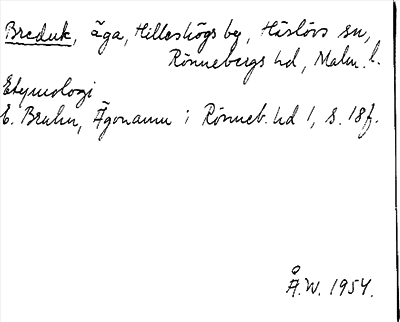 Breduk, äga, Hilleshögs by, Härslövs sn,
Rönnebergs hd, Malm. l.
Etymologi
E. Bruhn, Ägonamn i Rönneb. hd 1, s. 18f.
Å.W. 1954.